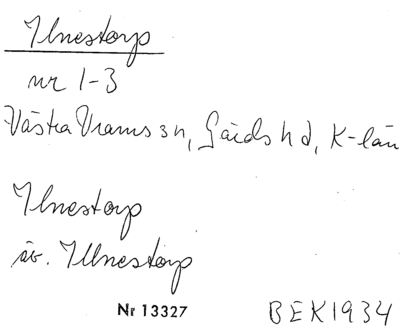 Ilnestorp
nr 1-3
Västra Vrams sn, Gärds hd, K-län
Ilnestorp
äv. Illnestorp
Nr 13327 BEK1934